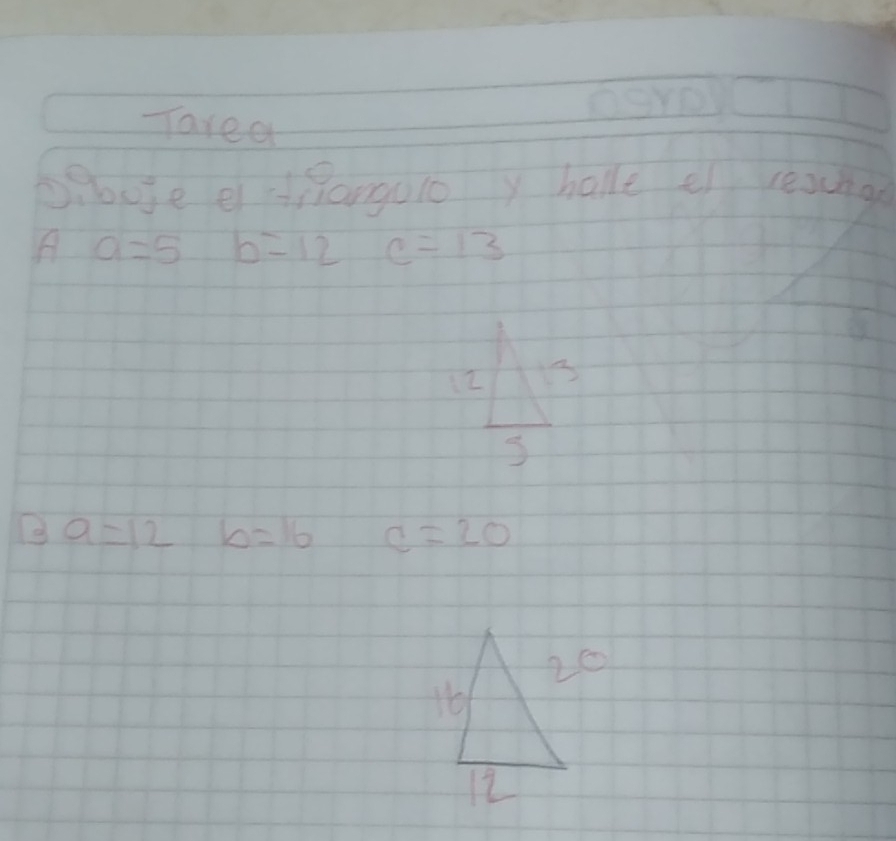 Tarea
Diboje el triangulo y halle el
A a=5 b=12 c=13
12 13
5
B a=12 b=16 c=20
16 20
12